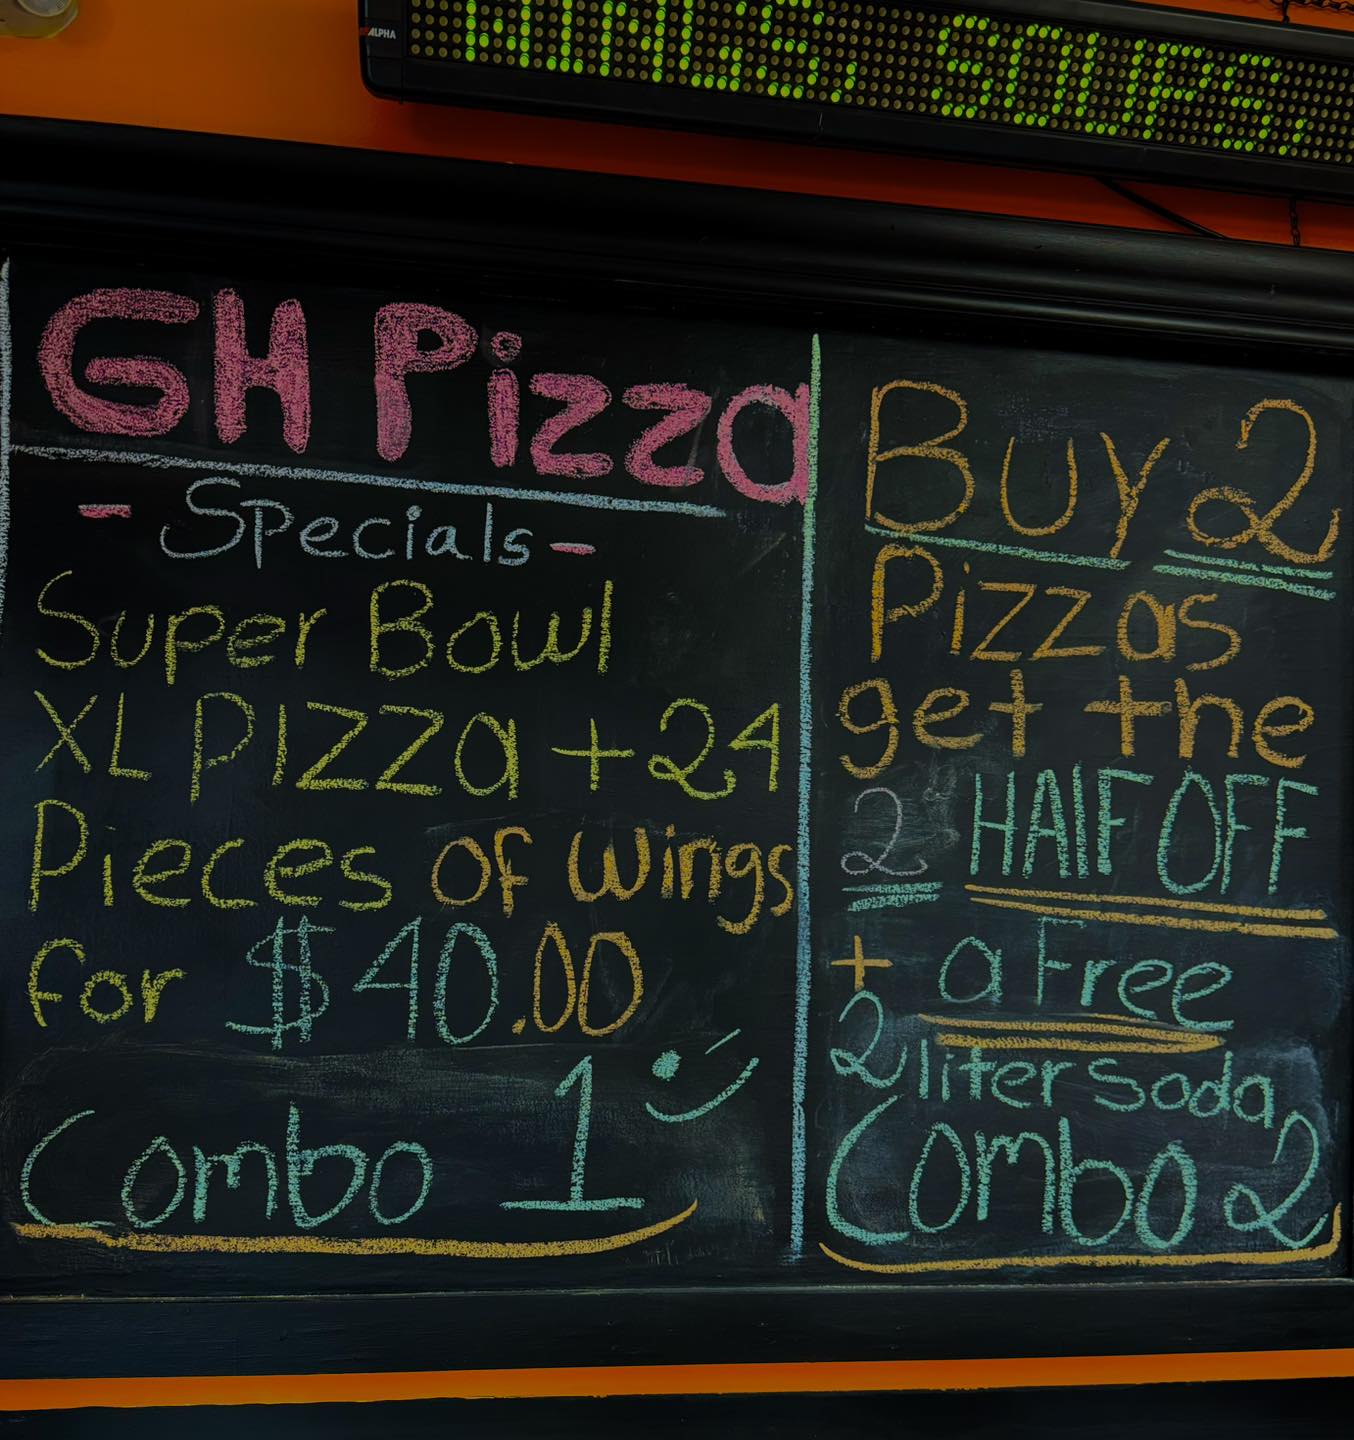 ALPHA
WINGS, SOUPS,
GH Pizza
- Specials -
Super Bowl
XL PIZZa + 24
Pieces of wings
for $40.00
Combo 1
Buy 2
Pizzas
get the
2 HAlF OFF
+ a Free
2 liter soda
Combo 2